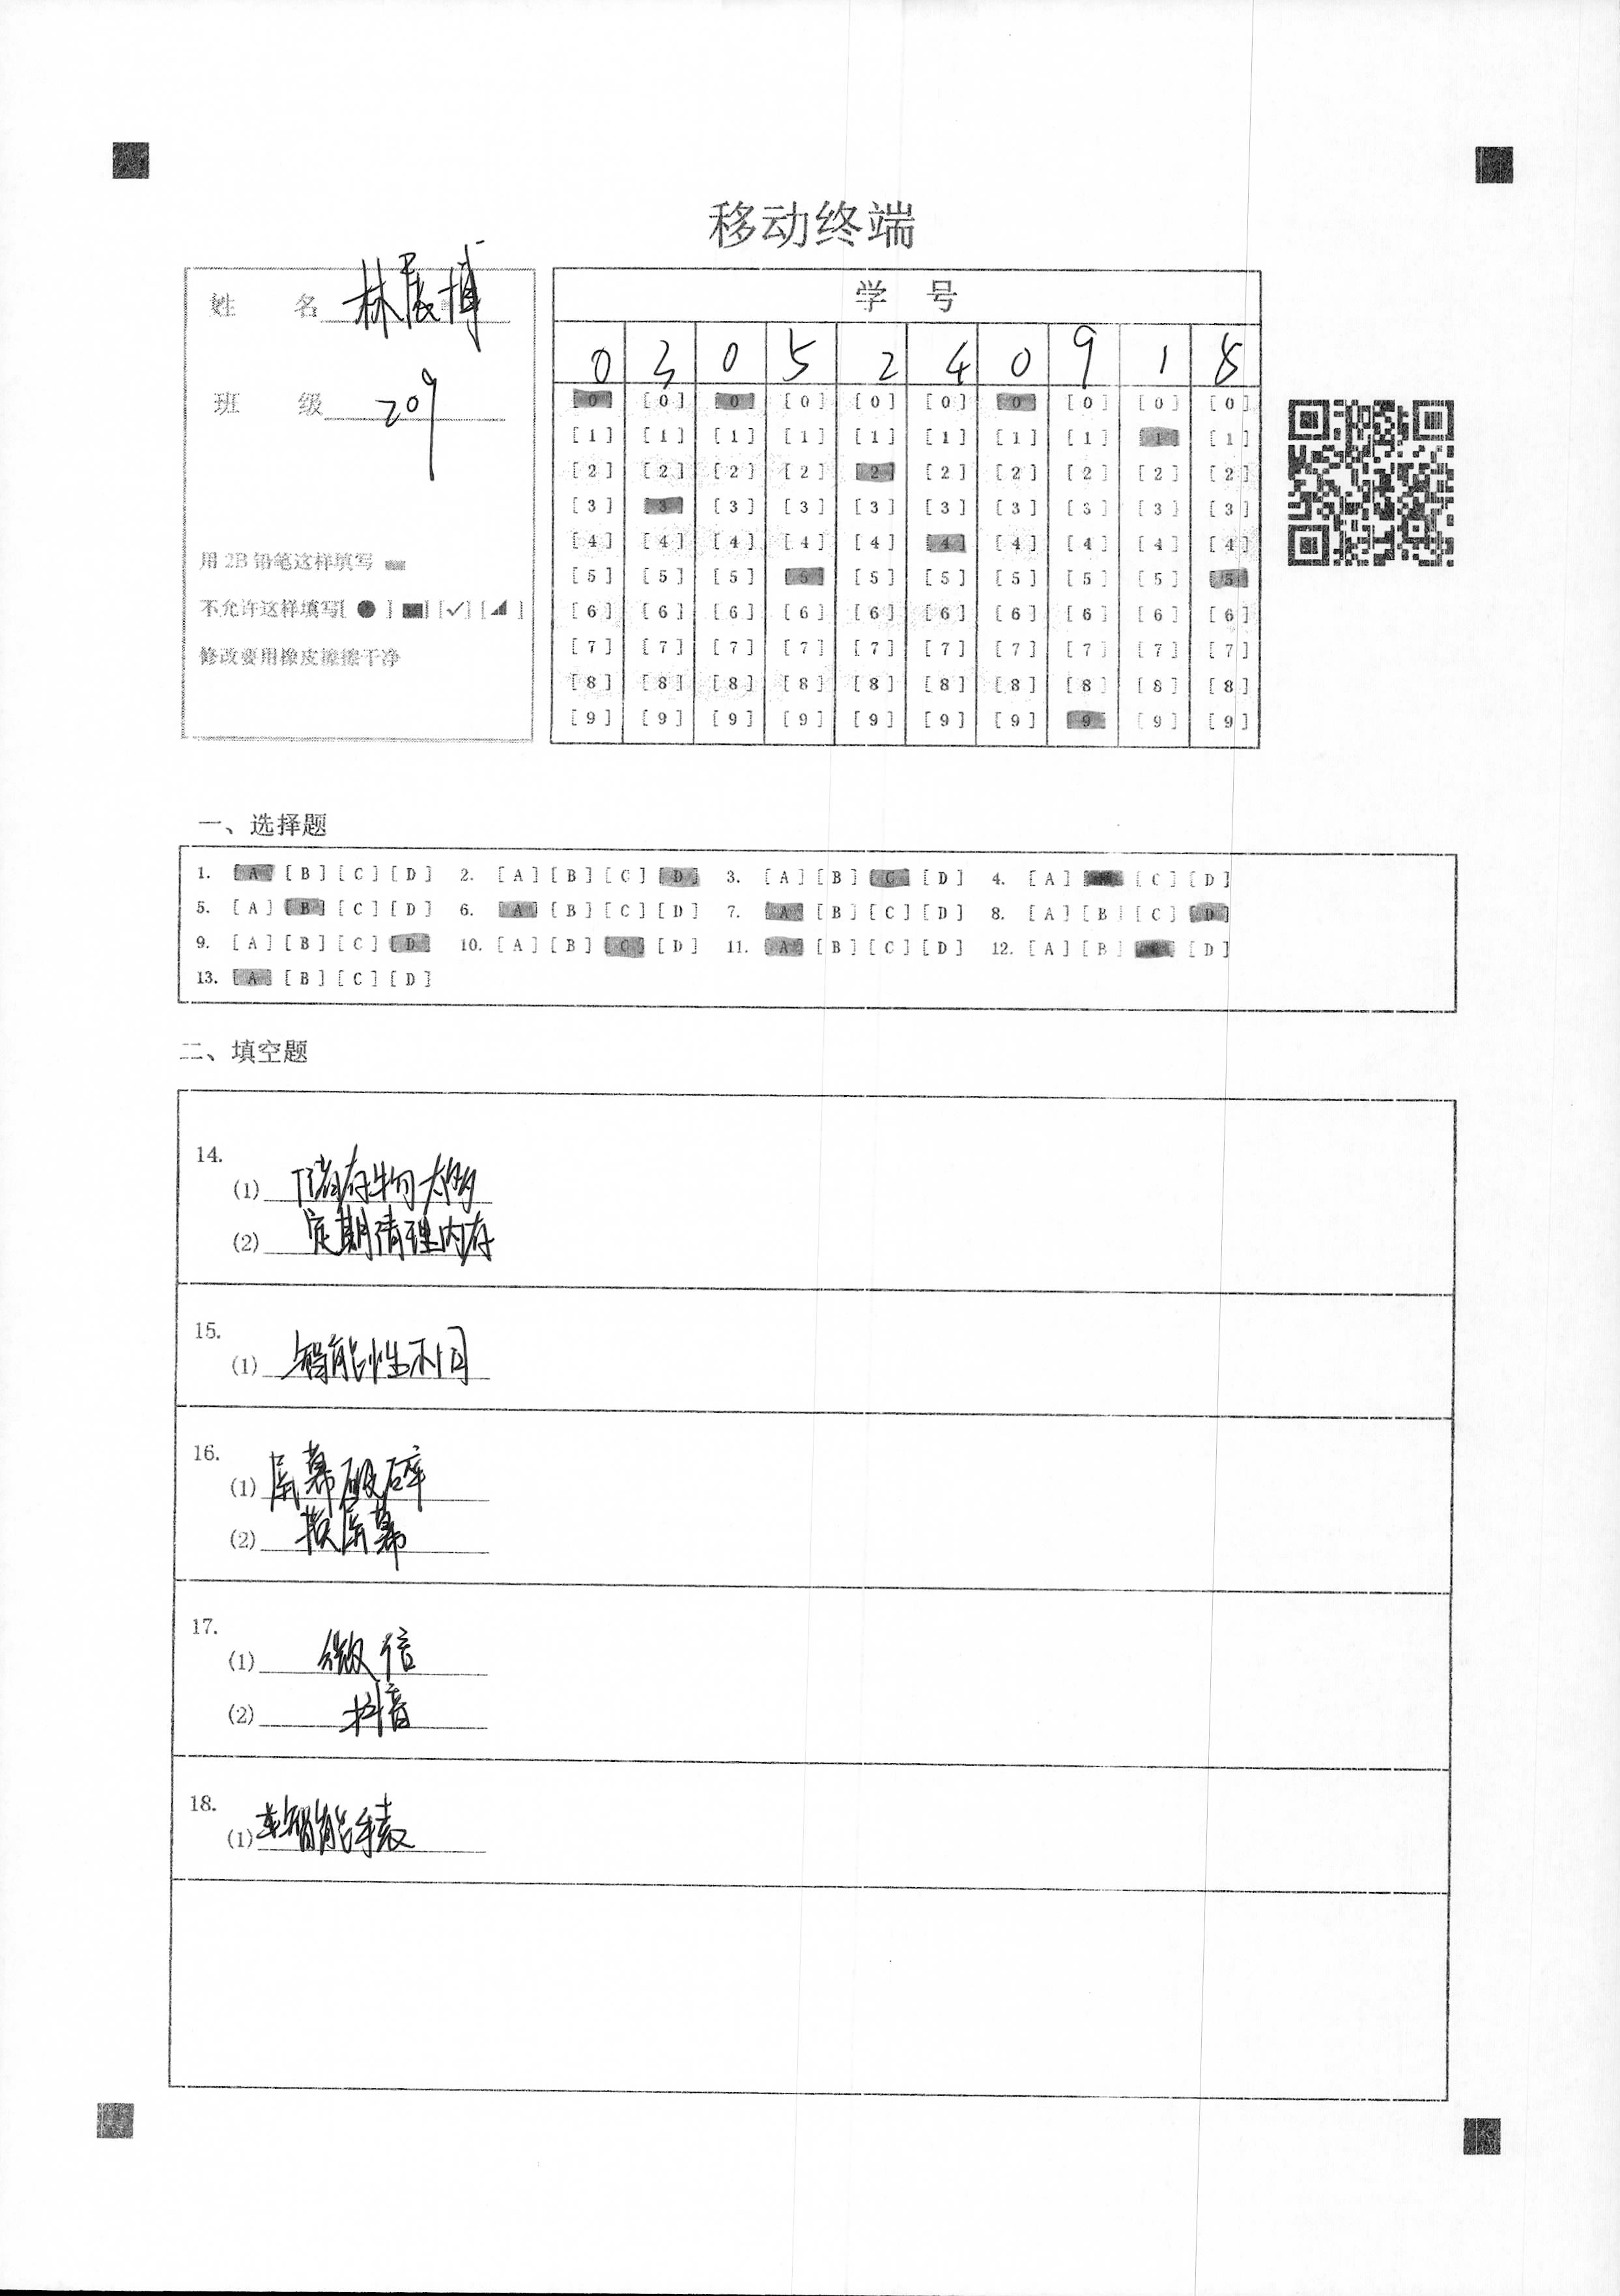 移动终端
姓 名 林展博
班 级 209
用 2B 铅笔这样填写
不允许这样填写[ ● ] [■] [✓] [◢ ]
修改要用橡皮擦擦干净
学 号
0 3 0 5 2 4 0 9 1 8
[0] [0] [0] [0] [0] [0] [0] [0] [0] [0]
[1] [1] [1] [1] [1] [1] [1] [1] [1] [1]
[2] [2] [2] [2] [2] [2] [2] [2] [2] [2]
[3] [3] [3] [3] [3] [3] [3] [3] [3] [3]
[4] [4] [4] [4] [4] [4] [4] [4] [4] [4]
[5] [5] [5] [5] [5] [5] [5] [5] [5] [5]
[6] [6] [6] [6] [6] [6] [6] [6] [6] [6]
[7] [7] [7] [7] [7] [7] [7] [7] [7] [7]
[8] [8] [8] [8] [8] [8] [8] [8] [8] [8]
[9] [9] [9] [9] [9] [9] [9] [9] [9] [9]
一、选择题
1. [A] [B] [C] [D] 2. [A] [B] [C] [D] 3. [A] [B] [C] [D] 4. [A] [B] [C] [D]
5. [A] [B] [C] [D] 6. [A] [B] [C] [D] 7. [A] [B] [C] [D] 8. [A] [B] [C] [D]
9. [A] [B] [C] [D] 10. [A] [B] [C] [D] 11. [A] [B] [C] [D] 12. [A] [B] [C] [D]
13. [A] [B] [C] [D]
二、填空题
14.
(1) 储存物太多
(2) 定期清理内存
15.
(1) 智能性不同
16.
(1) 屏幕破碎
(2) 换屏幕
17.
(1) 微信
(2) 抖音
18.
(1) 智能手表